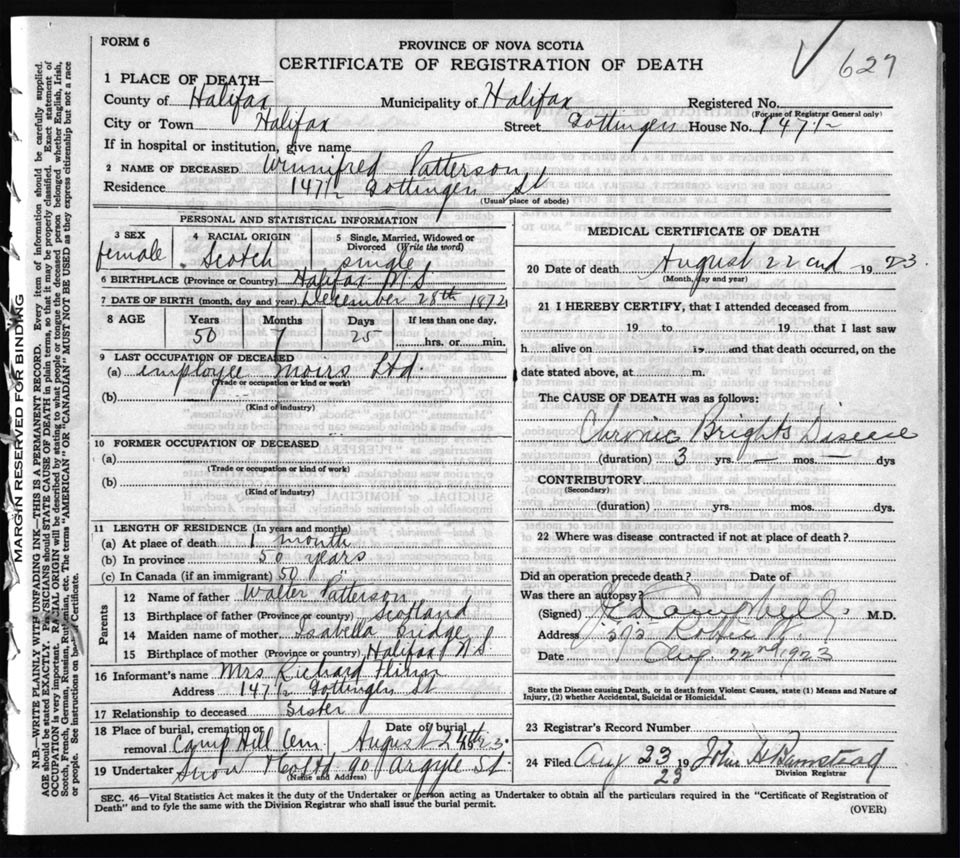 629
FORM 6
PROVINCE OF NOVA SCOTIA
CERTIFICATE OF REGISTRATION OF DEATH
1 PLACE OF DEATH—
County of Halifax Municipality of Halifax Registered No.
(For use of Registrar General only)
City or Town Halifax Street Gottingen House No. 147½
If in hospital or institution, give name
2 NAME OF DECEASED Winnifred Patterson
Residence 147½ Gottingen St
(Usual place of abode)
PERSONAL AND STATISTICAL INFORMATION
3 SEX female
4 RACIAL ORIGIN Scotch
5 Single, Married, Widowed or Divorced (Write the word) single
6 BIRTHPLACE (Province or Country) Halifax N S
7 DATE OF BIRTH (month, day and year) December 28th 1872
8 AGE Years Months Days If less than one day,
50 7 25 hrs. or min.
9 LAST OCCUPATION OF DECEASED
(a) employee Moirs Ltd.
(Trade or occupation or kind or work)
(b)
(Kind of industry)
10 FORMER OCCUPATION OF DECEASED
(a)
(Trade or occupation or kind or work)
(b)
(Kind of industry)
11 LENGTH OF RESIDENCE (In years and months)
(a) At place of death 1 month
(b) In province 50 years
(c) In Canada (if an immigrant) 50
Parents
12 Name of father Walter Patterson
13 Birthplace of father (Province or country) Scotland
14 Maiden name of mother Isabella Bridge
15 Birthplace of mother (Province or country) Halifax N S
16 Informant's name Mrs Richard
Address 147½ Gottingen St
17 Relationship to deceased Sister
18 Place of burial, cremation or removal Camp Hill Cem
Date of burial August 24th 1923
19 Undertaker Snow 90 Argyle St.
(Name and Address)
MEDICAL CERTIFICATE OF DEATH
20 Date of death August 22nd 1923.
(Month, day and year)
21 I HEREBY CERTIFY, that I attended deceased from
19 to 19 that I last saw
h alive on 19 and that death occurred, on the
date stated above, at m.
The CAUSE OF DEATH was as follows:
Chronic Brights Disease
(duration) 3 yrs. — mos. — dys
CONTRIBUTORY
(Secondary)
(duration) yrs. mos. dys.
22 Where was disease contracted if not at place of death?
Did an operation precede death? Date of
Was there an autopsy?
(Signed) Campbell M.D.
Address
Date Aug. 22nd 1923
State the Disease causing Death, or in death from Violent Causes, state (1) Means and Nature of
Injury, (2) whether Accidental, Suicidal or Homicidal.
23 Registrar's Record Number
24 Filed Aug 23 19 23 John
Division Registrar
SEC. 46—Vital Statistics Act makes it the duty of the Undertaker or person acting as Undertaker to obtain all the particulars required in the "Certificate of Registration of
Death" and to fyle the same with the Division Registrar who shall issue the burial permit.
(OVER)
MARGIN RESERVED FOR BINDING
N.B.—WRITE PLAINLY WITH UNFADING INK—THIS IS A PERMANENT RECORD. Every item of information should be carefully supplied.
AGE should be stated EXACTLY. PHYSICIANS should STATE CAUSE OF DEATH in plain terms, so that it may be properly classified. Exact statement of
OCCUPATION is very important. RACIAL ORIGIN will be described by stating to what people or tongue the deceased person belonged whether English, Irish,
Scotch, French, German, Russian, Ruthenian, etc. The terms "AMERICAN" OR "CANADIAN" MUST NOT BE USED as they express citizenship but not a race
or people. See instructions on back of Certificate.